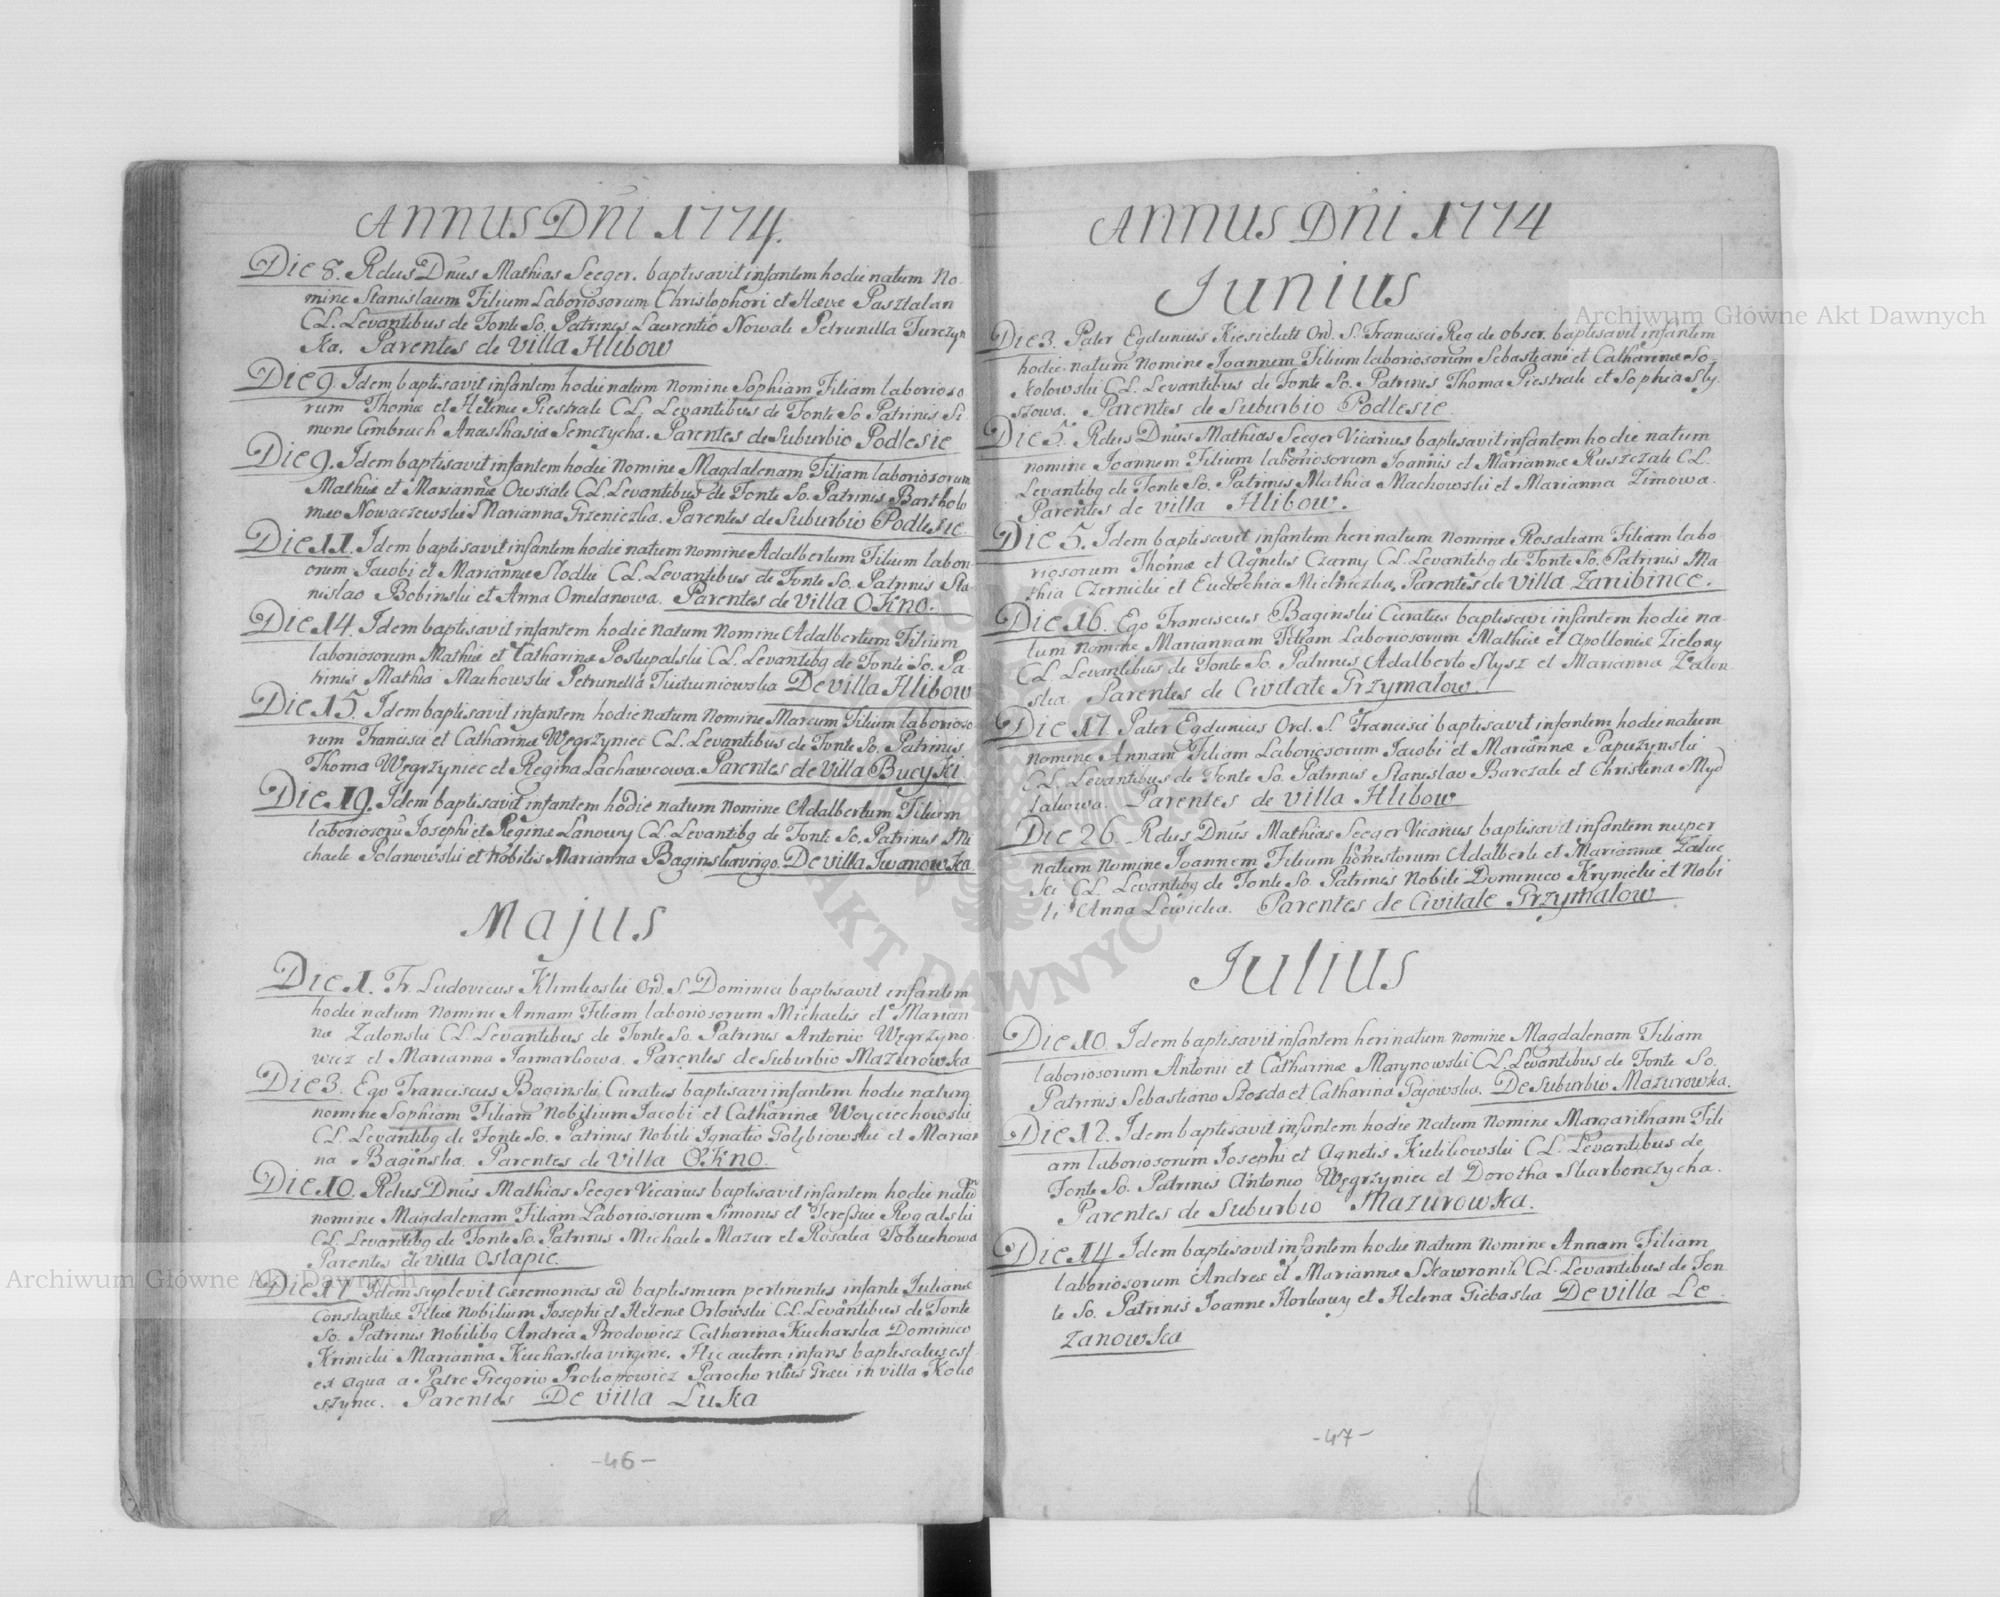 ANNUS DNI 1774.
Die 8. Rdus Dnus Mathias Seeger. baptisavit infantem hodie natum No-
mine Stanislaum Filium Laboriosorum Christophori et Hævæ Pasztalan
CL. Levantibus de Fonte So. Patrinis Laurentio Nowak Petrunella Turczyn
ka. Parentes de Villa Hlibow
Die 9. Idem baptisavit infantem hodie natum nomine Sophiam Filiam laborioso
rum Thomæ et Helenæ Piestrak CL. Levantibus de Fonte So Patrinis Si
mone Cimbruch Anasthasia Semczycha. Parentes de Suburbio Podlesie
Die 9. Idem baptisavit infantem hodie Nomine Magdalenam Filiam laboriosorum
Mathiæ et Mariannæ Owsiak CL. Levantibus de Fonte So. Patrinis Bartholo
meo Nowaczewski Marianna Grzeniczka. Parentes de Suburbio Podlesie
Die 11. Idem baptisavit infantem hodie natum nomine Adalbertum Filium labori
orum Jacobi et Mariannæ Slodki CL. Levantibus de Fonte So. Patrinis Sta
nislao Bobinski et Anna Omelanowa. Parentes de Villa OKno.
Die 14. Idem baptisavit infantem hodie natum Nomine Adalbertum Filium
laboriosorum Mathiæ et Catharinæ Postupalski CL. Levantibq de Fonte So. Pa
trinis Mathia Machowski Petrunella Tustuniowska De villa Hlibow
Die 15. Idem baptisavit infantem hodie natum nomine Marcum Filium laborioso
rum Francisci et Catharinæ Węgrzyniec CL. Levantibus de Fonte So. Patrinis
Thoma Węgrzyniec et Regina Lachawcowa. Parentes de Villa BucyKi
Die 19. Idem baptisavit infantem hodie natum nomine Adalbertum Filium
laboriosorū Josephi et Reginæ Lanowy CL. Levantibq de Fonte So. Patrinis Mi
chaele Polanowski et Nobilis Marianna Baginska virgo. De villa IwanowKa
Majus
Die 1. Fr. Ludovicus Klimkoski Ord. S. Dominici baptisavit infantem
hodie natum nomine Annam Filiam laboriosorum Michaelis et Marian
næ Zalonski CL. Levantibus de Fonte So. Patrinis Antonio Węgrzyno
wicz et Marianna Jarmarkowa. Parentes de Suburbio Mazurowka
Die 3. Ego Franciscus Baginski Curatus baptisavi infantem hodie natum
nomine Sophiam Filiam Nobilium Jacobi et Catharinæ Woyciechowski
CL. Levantibq de Fonte So. Patrinis Nobili Ignatio Gołębiowski et Marian
na Baginska. Parentes de Villa OKno.
Die 10. Rdus Dnus Mathias Seeger Vicarius baptisavit infantem hodie natum
nomine Magdalenam Filiam Laboriosorum Simonis et Teressiæ Rogalski
CL. Levantibq de Fonte So. Patrinis Michaele Mazur et Rosalia Tobuchowa
Parentes de Villa Ostapie.
Die 17. Idem suplevit cæremonias ad baptismum pertinentes infanti Julianæ
Constantiæ Filiæ Nobilium Josephi et Helenæ Orlowski CL. Levantibus de Fonte
So. Patrinis Nobilibq Andrea Brodowicz Catharina Kucharska Dominico
Krinicki Marianna Kucharska virgine. Hic autem infans baptisatus est
ex aqua a Patre Gregorio Prokopowicz Parocho ritus Græci in villa Koko
szynce. Parentes De villa Luka
-46-
ANNUS DNI 1774
Junius
Die 3. Pater Egdunius Kiesielutt Ord. S. Francisci Reg de obser. baptisavit infantem
hodie natum Nomine Joannem Filium laboriosorum Sebastiani et Catharinæ So-
kolowski CL. Levantibus de Fonte So. Patrinis Thoma Piestrak et Sophia Sly
szowa. Parentes de Suburbio Podlesie
Die 5. Rdus Dnus Mathias Seeger Vicarius baptisavit infantem hodie natum
nomine Joannem Filium laboriosorum Joannis et Mariannæ Ruszczak CL.
Levantibq de Fonte So. Patrinis Mathia Machowski et Marianna Zimowa.
Parentes de villa Hlibow.
Die 5. Idem baptisavit infantem heri natum Nomine Rosaliam Filiam labo
riosorum Thomæ et Agnetis Czarny CL. Levantibq de Fonte So. Patrinis Ma
thia Czernicki et Eudochia Mielniczka. Parentes de Villa Zarubince.
Die 16. Ego Franciscus Baginski Curatus baptisavi infantem hodie na-
tum Nomine Mariannam Filiam Laboriosorum Mathiæ et Apolloniæ Zielony
CL. Levantibus de Fonte So. Patrinis Adalberto Slysz et Marianna Zalon-
ska Parentes de Civitate Grzymalow.
Die 17. Pater Egdunius Ord. S. Francisci baptisavit infantem hodie natum
nomine Annam Filiam Laboriosorum Jacobi et Mariannæ Papuzynski
CL. Levantibus de Fonte So. Patrinis Stanislao Barczak et Christina Myd
lakowa. Parentes de Villa Hlibow
Die 26 Rdus Dnus Mathias Seeger Vicarius baptisavit infantem nuper
natum Nomine Joannem Filium honestorum Adalberti et Mariannæ Zaluc
ki CL. Levantibq de Fonte So. Patrinis Nobili Dominico Krynicki et Nobi
li Anna Lewicka. Parentes de Civitate Grzymalow
Julius
Die 10. Idem baptisavit infantem heri natum Nomine Magdalenam Filiam
laboriosorum Antonii et Catharinæ Marynowski CL. Levantibus de Fonte So.
Patrinis Sebastiano Szozda et Catharina Gajowska. De Suburbio Mazurowka.
Die 12. Idem baptisavit infantem hodie Natum Nomine Margaritham Fili
am laboriosorum Josephi et Agnetis Kulikowski CL. Levantibus de
Fonte So. Patrinis Antonio Węgrzyniec et Dorotha Skarbonczycha.
Parentes de Suburbio MazurowKa.
Die 14 Idem baptisavit infantem hodie Natum Nomine Annam Filiam
laboriosorum Andreæ et Mariannæ Skawronik CL. Levantibus de Fon
te So. Patrinis Joanne Horkawy et Helena Giebaska De villa Le
zanowka
-47-
Archiwum Główne Akt Dawnych
Archiwum Główne Akt Dawnych
AKT DAWNYCH